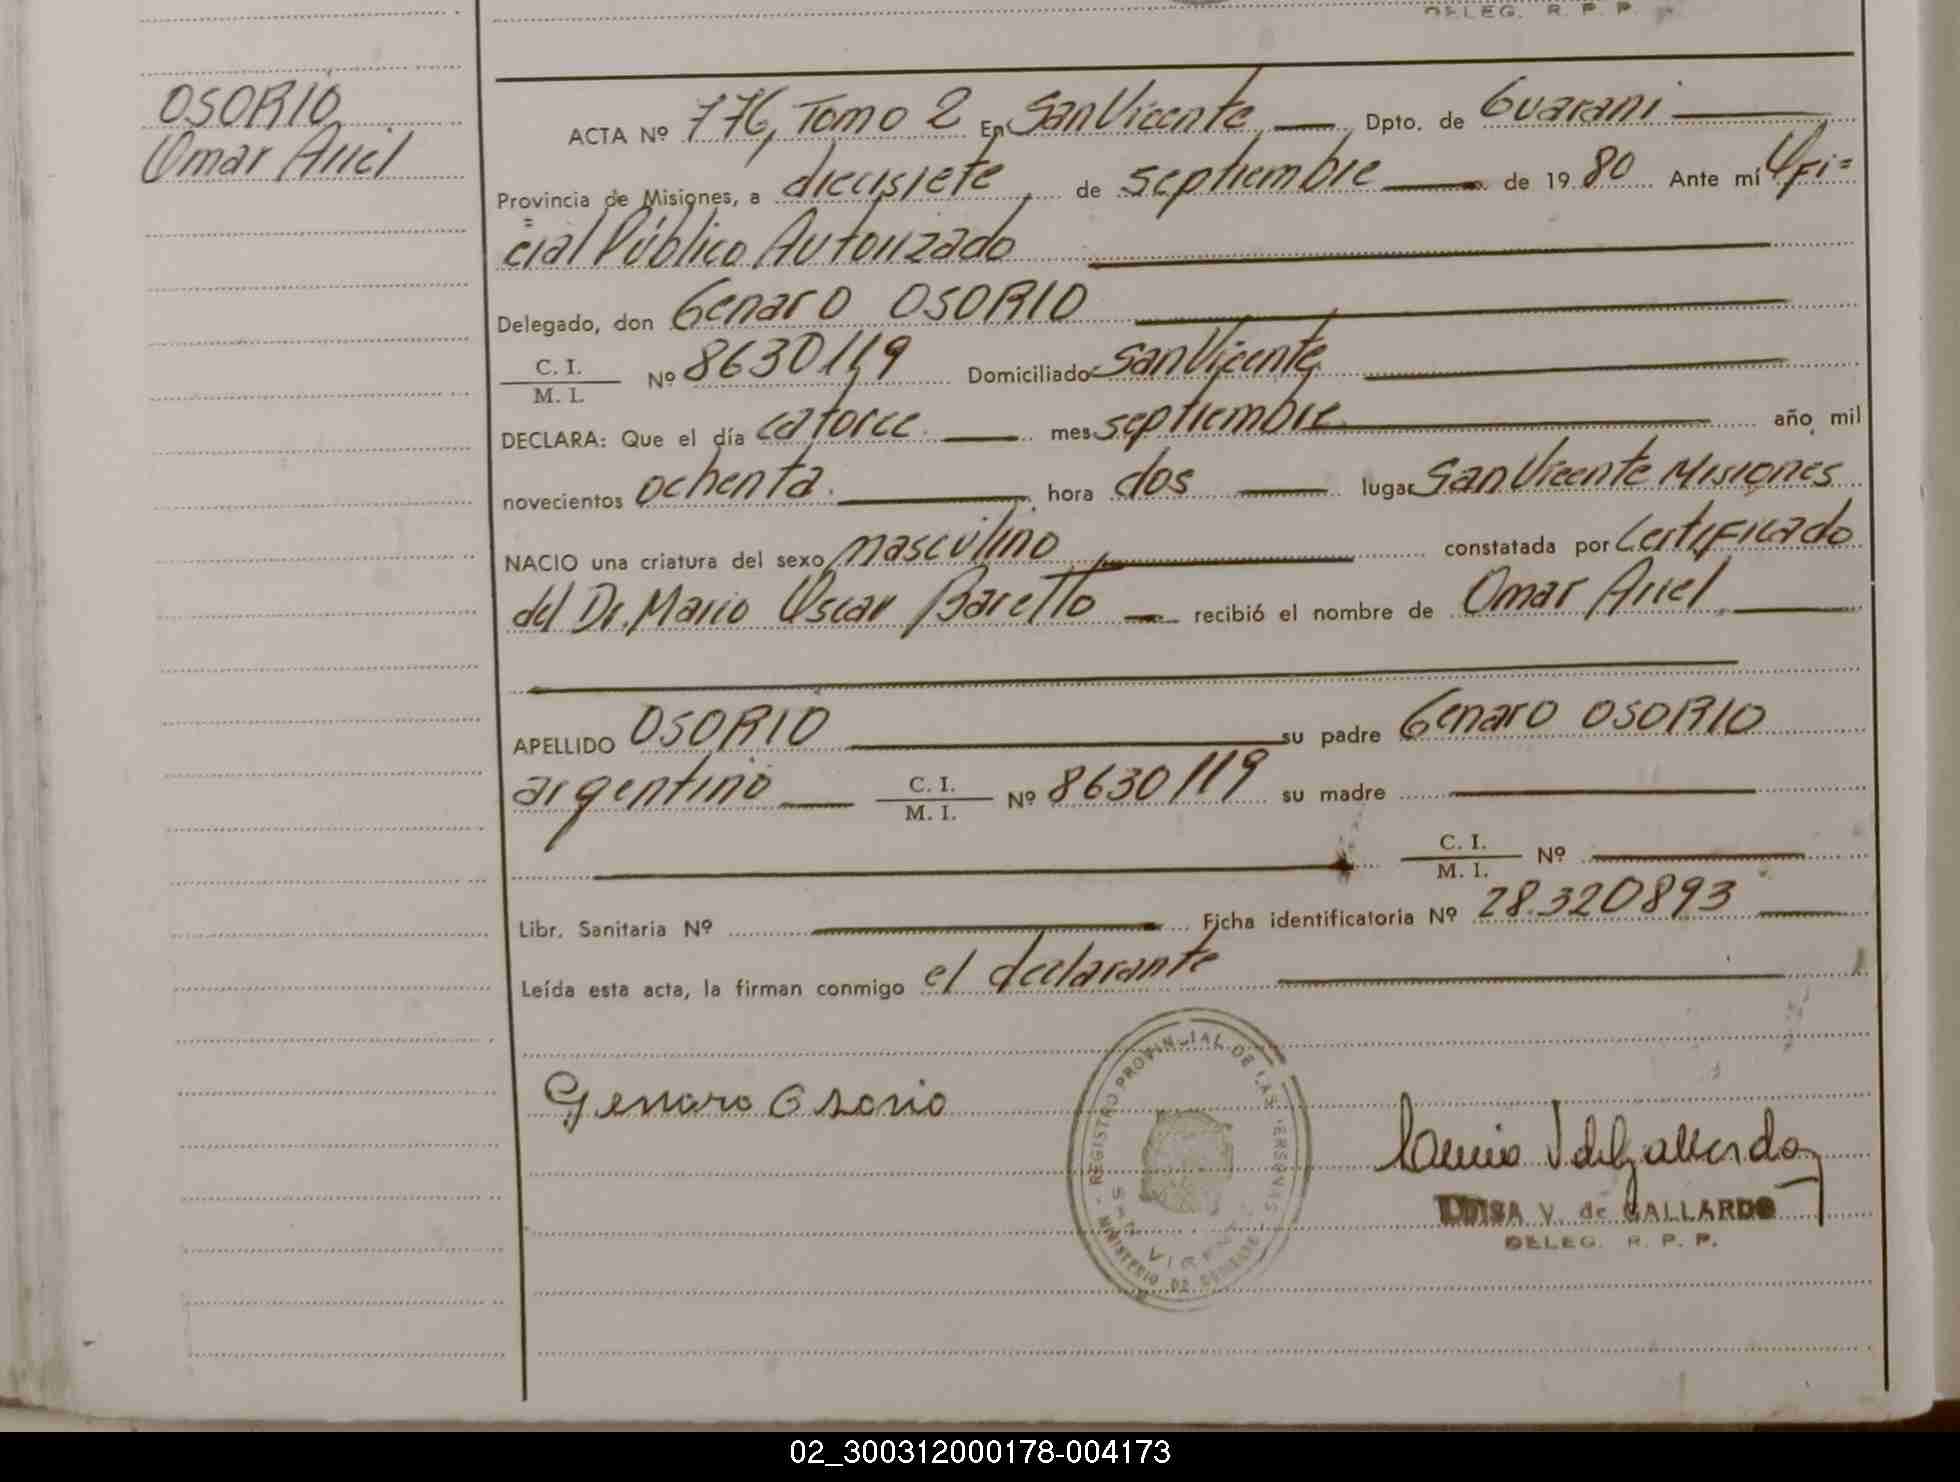 DELEG. R. P. P.
OSORIO
Omar Ariel
ACTA Nº 776, Tomo 2 En San Vicente Dpto. de Guaraní
Provincia de Misiones, a diecisiete de septiembre de 1980 Ante mí Ofi=
=cial Público Autorizado
Delegado, don Genaro OSORIO
C. I.
M. I. Nº 8630119 Domiciliado San Vicente
DECLARA: Que el día catorce mes septiembre año mil
novecientos ochenta. hora dos lugar San Vicente Misiones
NACIO una criatura del sexo masculino constatada por Certificado
del Dr. Mario Oscar Baretto recibió el nombre de Omar Ariel
APELLIDO OSORIO su padre Genaro OSORIO
argentino C. I.
M. I. Nº 8630119 su madre
C. I.
M. I. Nº
Libr. Sanitaria Nº Ficha identificatoria Nº 28.320893
Leída esta acta, la firman conmigo el declarante
Genaro Osorio
REGISTRO PROVINCIAL DE LAS PERSONAS
SAN VICENTE
MINISTERIO DE GOBIERNO
LUISA V. de GALLARDO
DELEG. R. P. P.
02_300312000178-004173